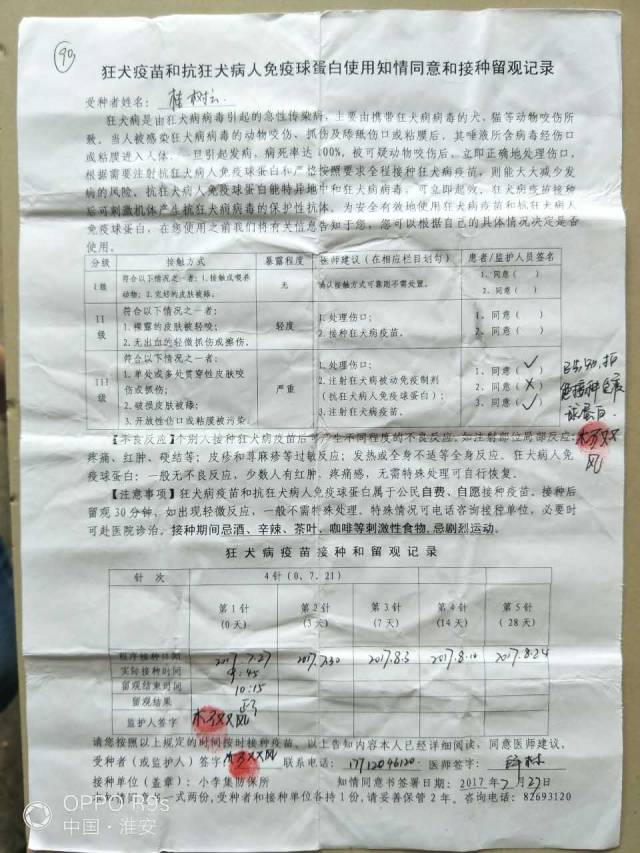 90
狂犬疫苗和抗狂犬病人免疫球蛋白使用知情同意和接种留观记录
受种者姓名：桂树
狂犬病是由狂犬病病毒引起的急性传染病，主要由携带狂犬病病毒的犬、猫等动物咬伤所
致。当人被感染狂犬病病毒的动物咬伤、抓伤及舔舐伤口或粘膜后，其唾液所含病毒经伤口
或粘膜进入人体，一旦引起发病，病死率达100%，被可疑动物咬伤后，立即正确地处理伤口，
根据需要注射抗狂犬病人免疫球蛋白和严格按照要求全程接种狂犬病疫苗，则能大大减少发
病的风险。抗狂犬病人免疫球蛋白能特异地中和狂犬病病毒，可立即起效。狂犬病疫苗接种
后可刺激机体产生抗狂犬病病毒的保护性抗体。为安全有效地使用狂犬病疫苗和抗狂犬病人
免疫球蛋白，在您使用之前我们将有关信息告知于您，您可以根据自己的具体情况决定是否
使用。
分级 接触方式 暴露程度 医师建议（在相应栏目划勾） 患者/监护人员签名
I级 符合以下情况之一者：1.接触或喂养动物；2.完好的皮肤被舔。 无 确认接触方式可靠则不需处置。 1、同意（ ） 2、同意（ ）
II级 符合以下情况之一者：1.裸露的皮肤被轻咬；2.无出血的轻微抓伤或擦伤。 轻度 1.处理伤口；2.接种狂犬病疫苗。 1、同意（ ） 2、同意（ ）
III级 符合以下情况之一者：1.单处或多处贯穿性皮肤咬伤或抓伤；2.破损皮肤被舔；3.开放性伤口或粘膜被污染。 严重 1.处理伤口；2.注射狂犬病被动免疫制剂（抗狂犬病人免疫球蛋白）；3.注射狂犬病疫苗。 1、同意（✓） 2、同意（✗） 3、同意（✓）
已告知，拒
蛋白。
【不良反应】个别人接种狂犬病疫苗后可产生不同程度的不良反应。如注射部位局部反应：
疼痛、红肿、硬结等；皮疹和荨麻疹等过敏反应；发热或全身不适等全身反应。狂犬病人免
疫球蛋白：一般无不良反应，少数人有红肿、疼痛感，无需特殊处理可自行恢复。
【注意事项】狂犬病疫苗和抗狂犬病人免疫球蛋白属于公民自费、自愿接种疫苗。接种后
留观30分钟，如出现轻微反应，一般不需特殊处理。特殊情况可电话咨询接种单位，必要时
可赴医院诊治。接种期间忌酒、辛辣、茶叶、咖啡等刺激性食物，忌剧烈运动。
狂犬病疫苗接种和留观记录
针次 4针(0、7、21)
第1针（0天） 第2针（3天） 第3针（7天） 第4针（14天） 第5针（28天）
程序接种日期 2017.7.27 2017.7.30 2017.8.3 2017.8.10 2017.8.24
实际接种时间 9:45
留观结束时间 10:15
留观结果
监护人签字
请您按照以上规定的时间按时接种疫苗。以上告知内容本人已经详细阅读，同意医师建议。
受种者（或监护人）签字： 联系电话：17712046120 医师签字：
接种单位（盖章）：小李集防保所 知情同意书签署日期：2017年7月27日
一式两份，受种者和接种单位各持1份，请妥善保管2年。咨询电话：82693120
OPPO R9s
中国·淮安